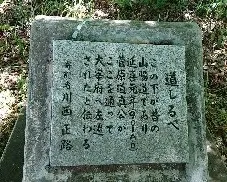 道しるべ
この下が昔の
山陽道であり
延喜元年(901年)
菅原道真公が
ここを通って
大宰府へ左遷
されたと伝わる
川西正路